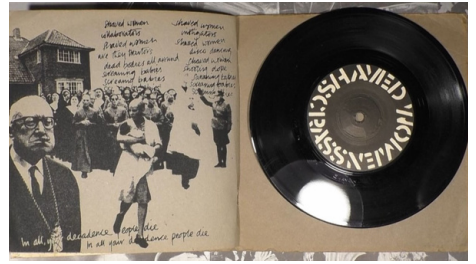 shaved women
collaborators
shaved women
are they traitors
dead bodies all around
screaming babies
screaming babies
shaved women
instigators
shaved women
disco dancing
shaved women
shooting dope
screaming babies
screaming babies
In all your decadence people die
In all your decadence people die
SHAVED WOMEN